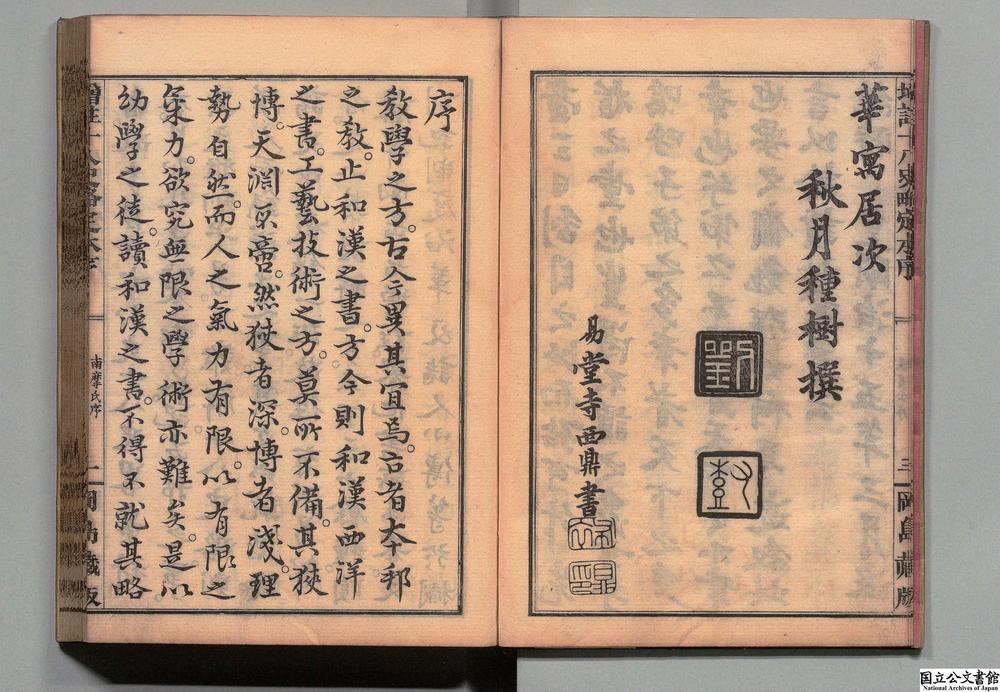 華寓居次
秋月種樹撰
易堂寺西鼎書
岡島藏版
序
教學之方。古今異其宜焉。古者本邦
之教。止和漢之書。方今則和漢西洋
之書。工藝技術之方。莫所不備。其狹
博。天淵不啻。然狹者深。博者淺。理
勢自然。而人之氣力有限。以有限之
氣力。欲究無限之學術亦難矣。是以
幼學之徒。讀和漢之書。不得不就其略
南摩氏序
国立公文書館
National Archives of Japan